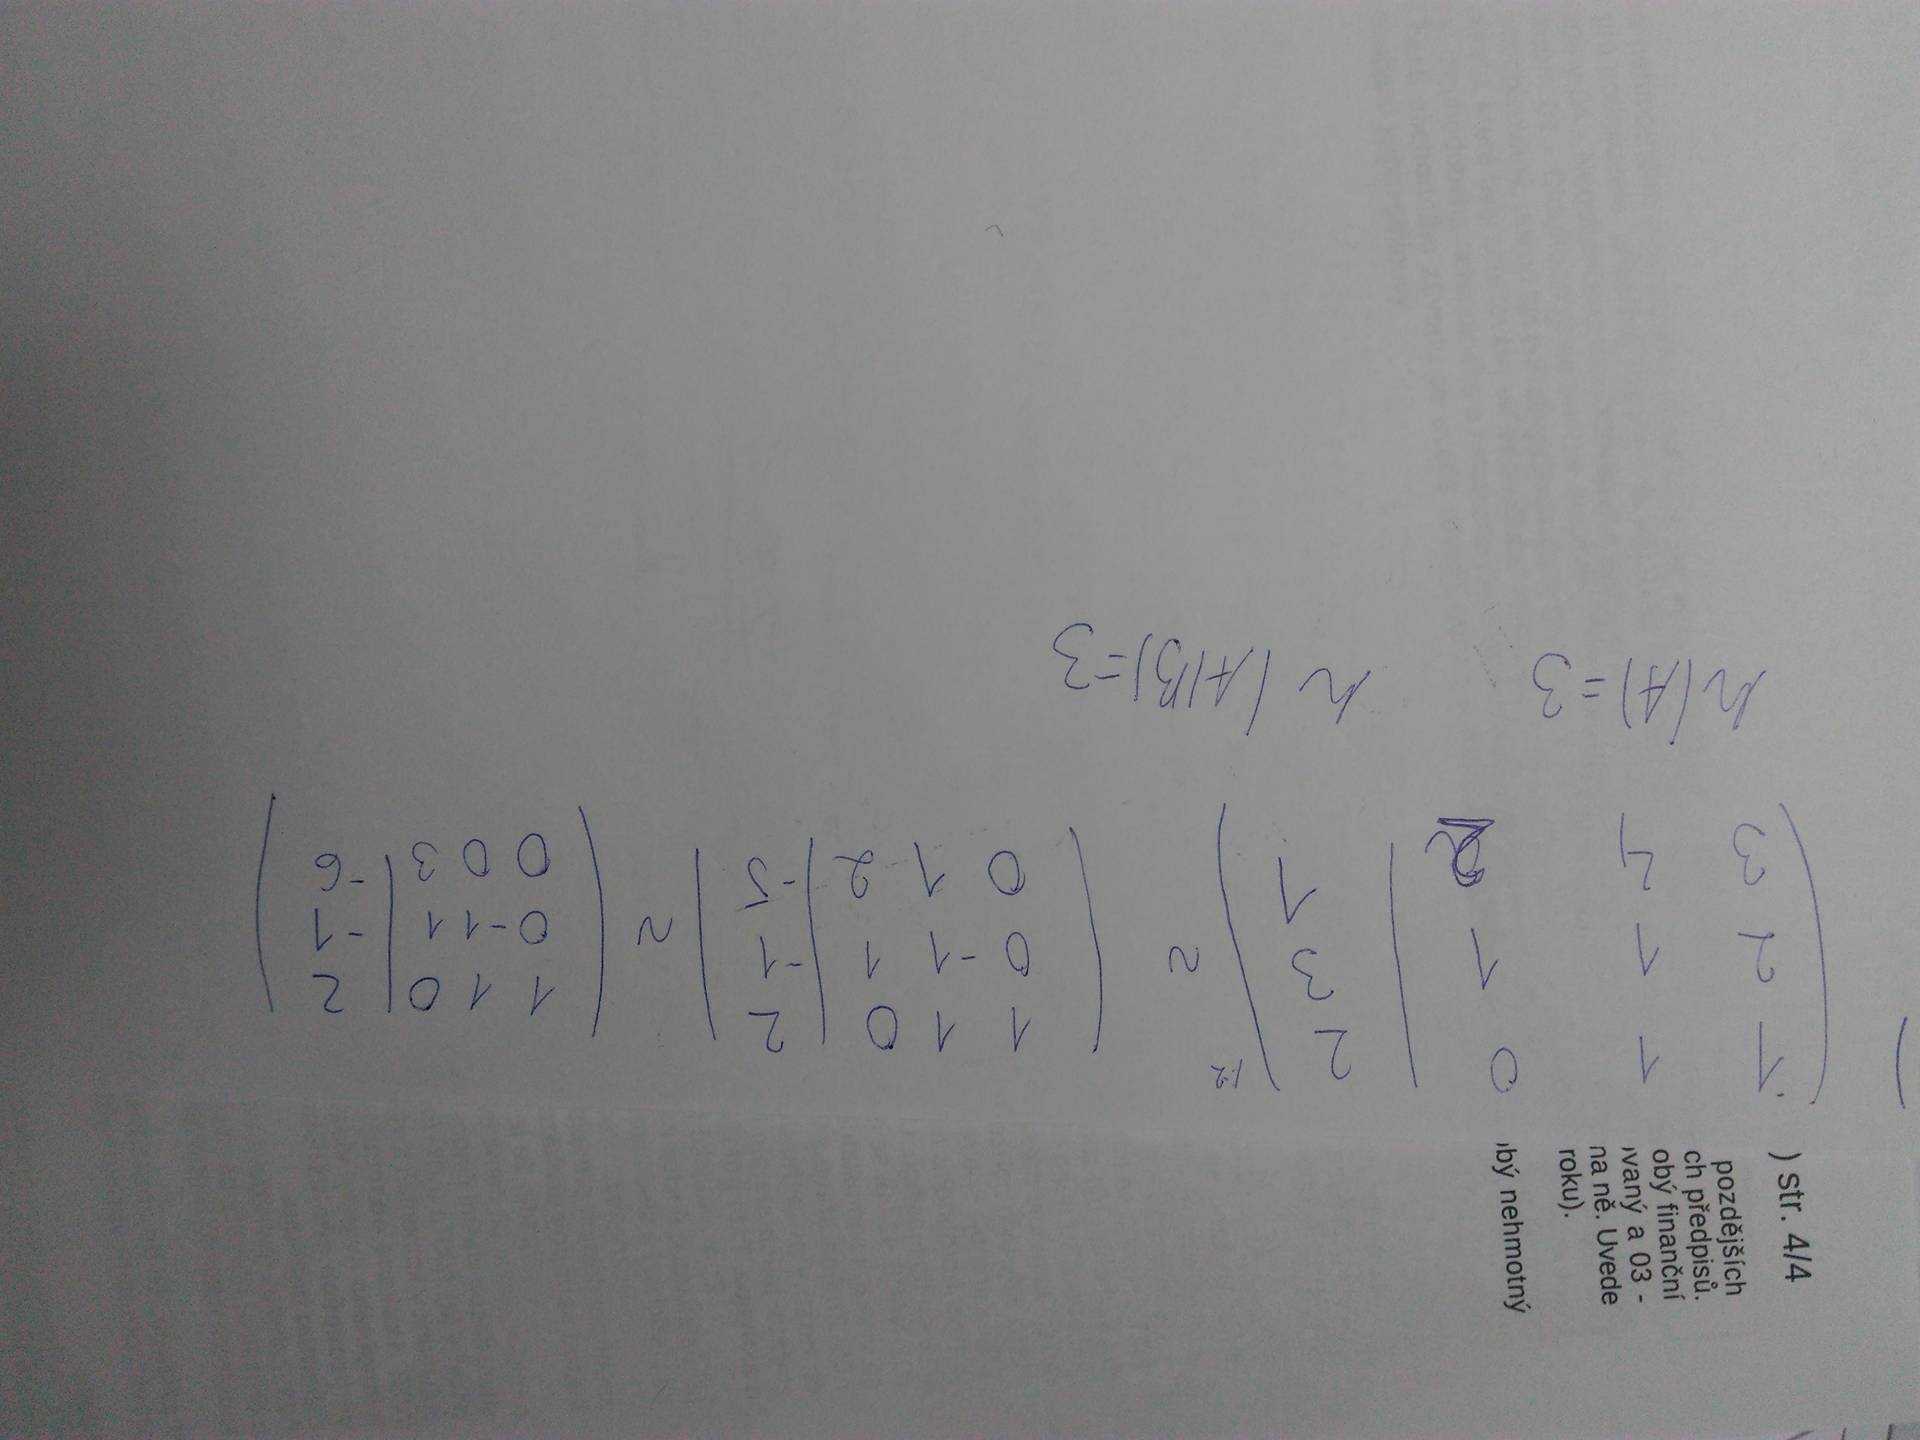 ) str. 4/4
pozdějších
ch předpisů.
obý finanční
vaný a 03 -
na ně. Uvede
roku).
bý nehmotný
( 1 1 0 | 2 ) ~ ( 1 1 0 | 2 ) ~ ( 1 1 0 | 2 )
( 2 1 1 | 3 ) ( 0 -1 1 | -1 ) ( 0 -1 1 | -1 )
( 3 4 2 | 1 ) ( 0 1 2 | -5 ) ( 0 0 3 | -6 )
h(A) = 3 h(A|B) = 3